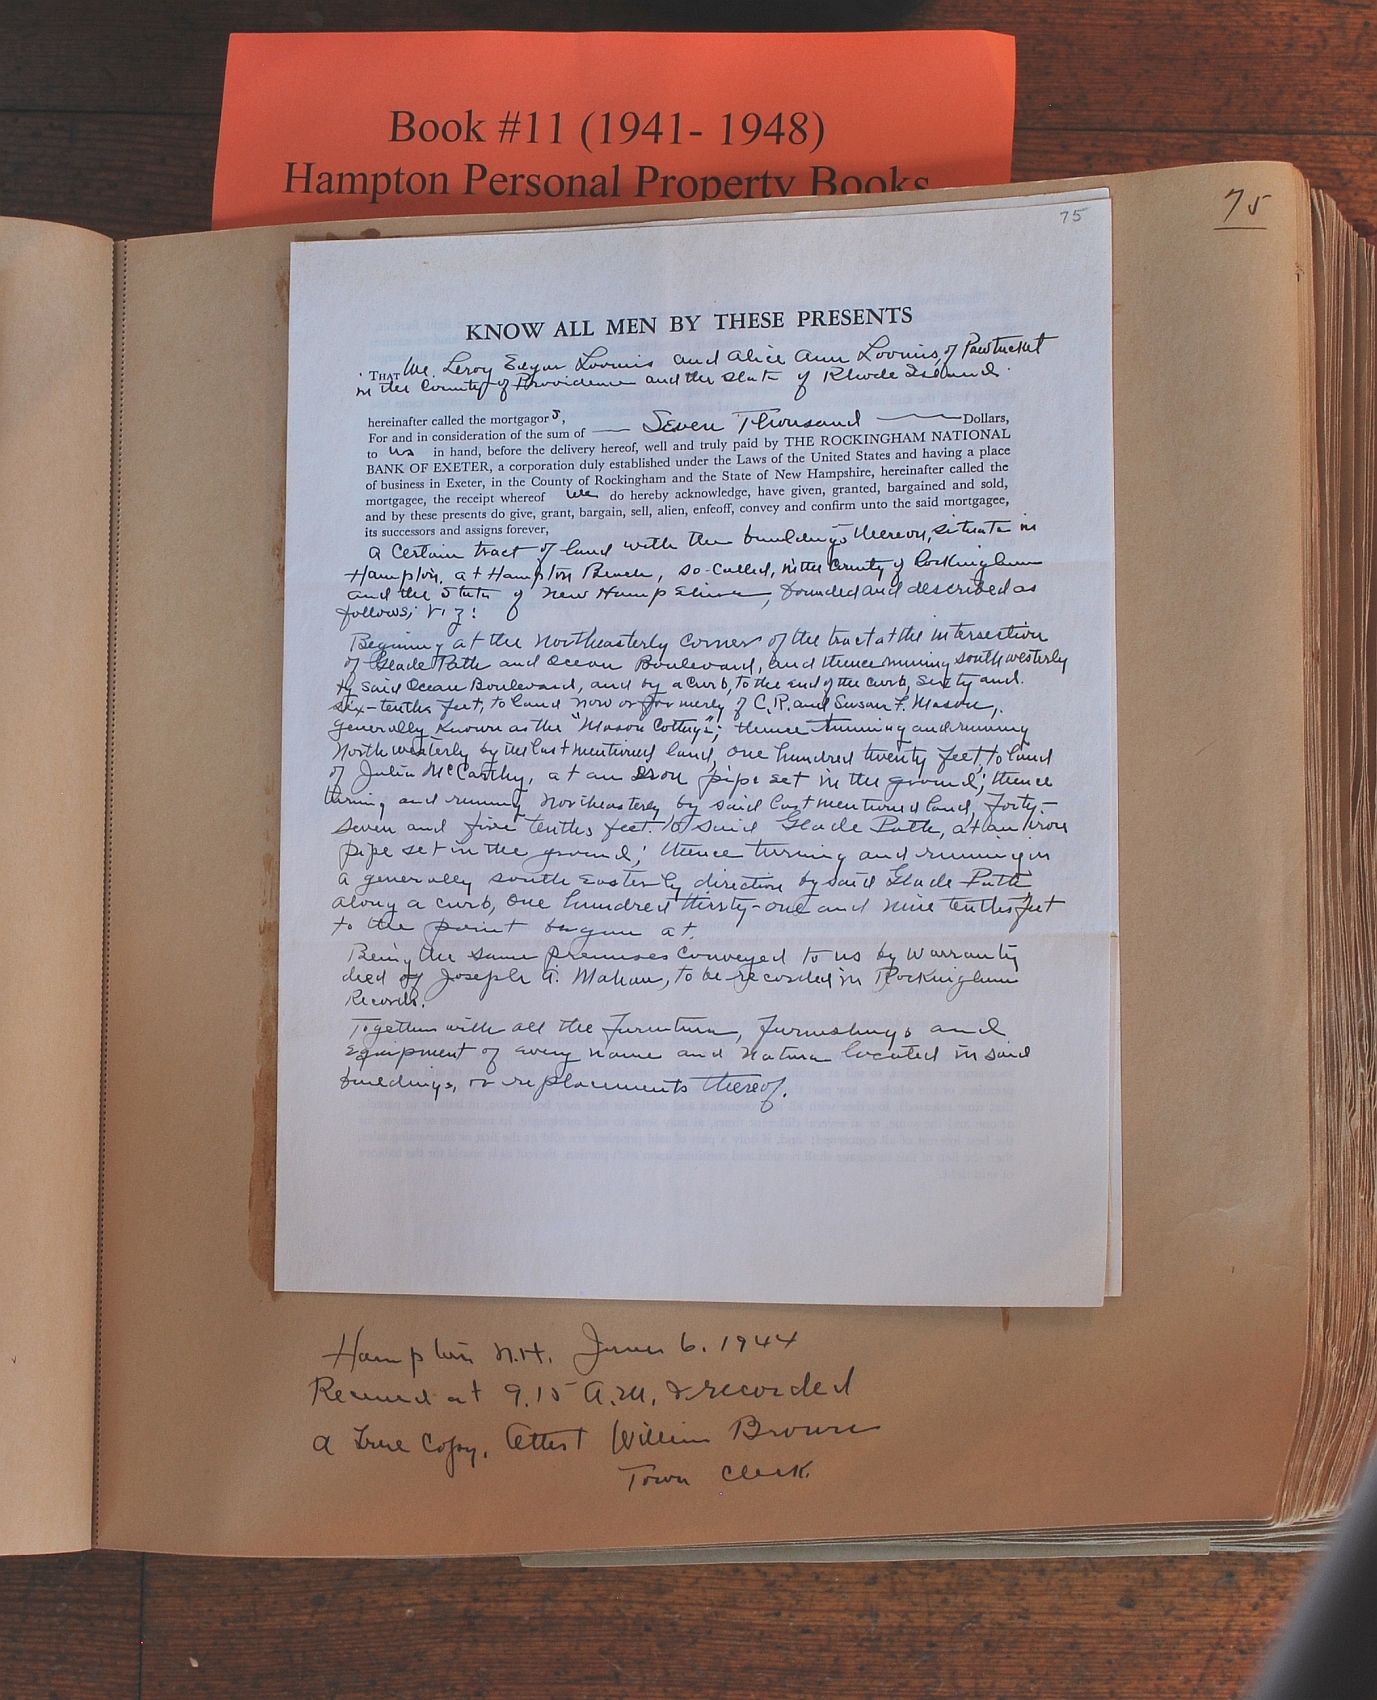 Book #11 (1941- 1948)
Hampton Personal Property Books
75
75
KNOW ALL MEN BY THESE PRESENTS
THAT We, Leroy Edgar Loomis and Alice Ann Loomis, of Pawtucket
in the County of Providence and the State of Rhode Island.
hereinafter called the mortgagors,
For and in consideration of the sum of — Seven Thousand — Dollars,
to us in hand, before the delivery hereof, well and truly paid by THE ROCKINGHAM NATIONAL
BANK OF EXETER, a corporation duly established under the Laws of the United States and having a place
of business in Exeter, in the County of Rockingham and the State of New Hampshire, hereinafter called the
mortgagee, the receipt whereof we do hereby acknowledge, have given, granted, bargained and sold,
and by these presents do give, grant, bargain, sell, alien, enfeoff, convey and confirm unto the said mortgagee,
its successors and assigns forever,
a certain tract of land with the buildings thereon, situate in
Hampton, at Hampton Beach, so-called, in the County of Rockingham
and the State of New Hampshire, bounded and described as
follows; viz:
Beginning at the Northeasterly corner of the tract at the intersection
of Glade Path and Ocean Boulevard, and thence running southwesterly
by said Ocean Boulevard, and by a curb, to the end of the curb, sixty and
six-tenths feet, to land now or formerly of C.R. and Susan F. Mason,
generally known as the "Mason Cottage"; thence turning and running
Northwesterly by the last mentioned land, one hundred twenty feet, to land
of Julia McCarthy, at an iron pipe set in the ground; thence
turning and running Northeasterly by said last mentioned land, forty-
seven and five tenths feet to said Glade Path, at an iron
pipe set in the ground; thence turning and running in
a generally south easterly direction by said Glade Path
along a curb, one hundred thirty-one and nine tenths feet
to the point begun at.
Being the same premises conveyed to us by warranty
deed of Joseph A. Mahan, to be recorded in Rockingham
Records.
Together with all the furniture, furnishings and
equipment of every name and nature located in said
buildings, or replacements thereof.
Hampton N.H. June 6. 1944
Received at 9.15 A.M. & recorded
a true copy. Attest William Brown
Town Clerk.